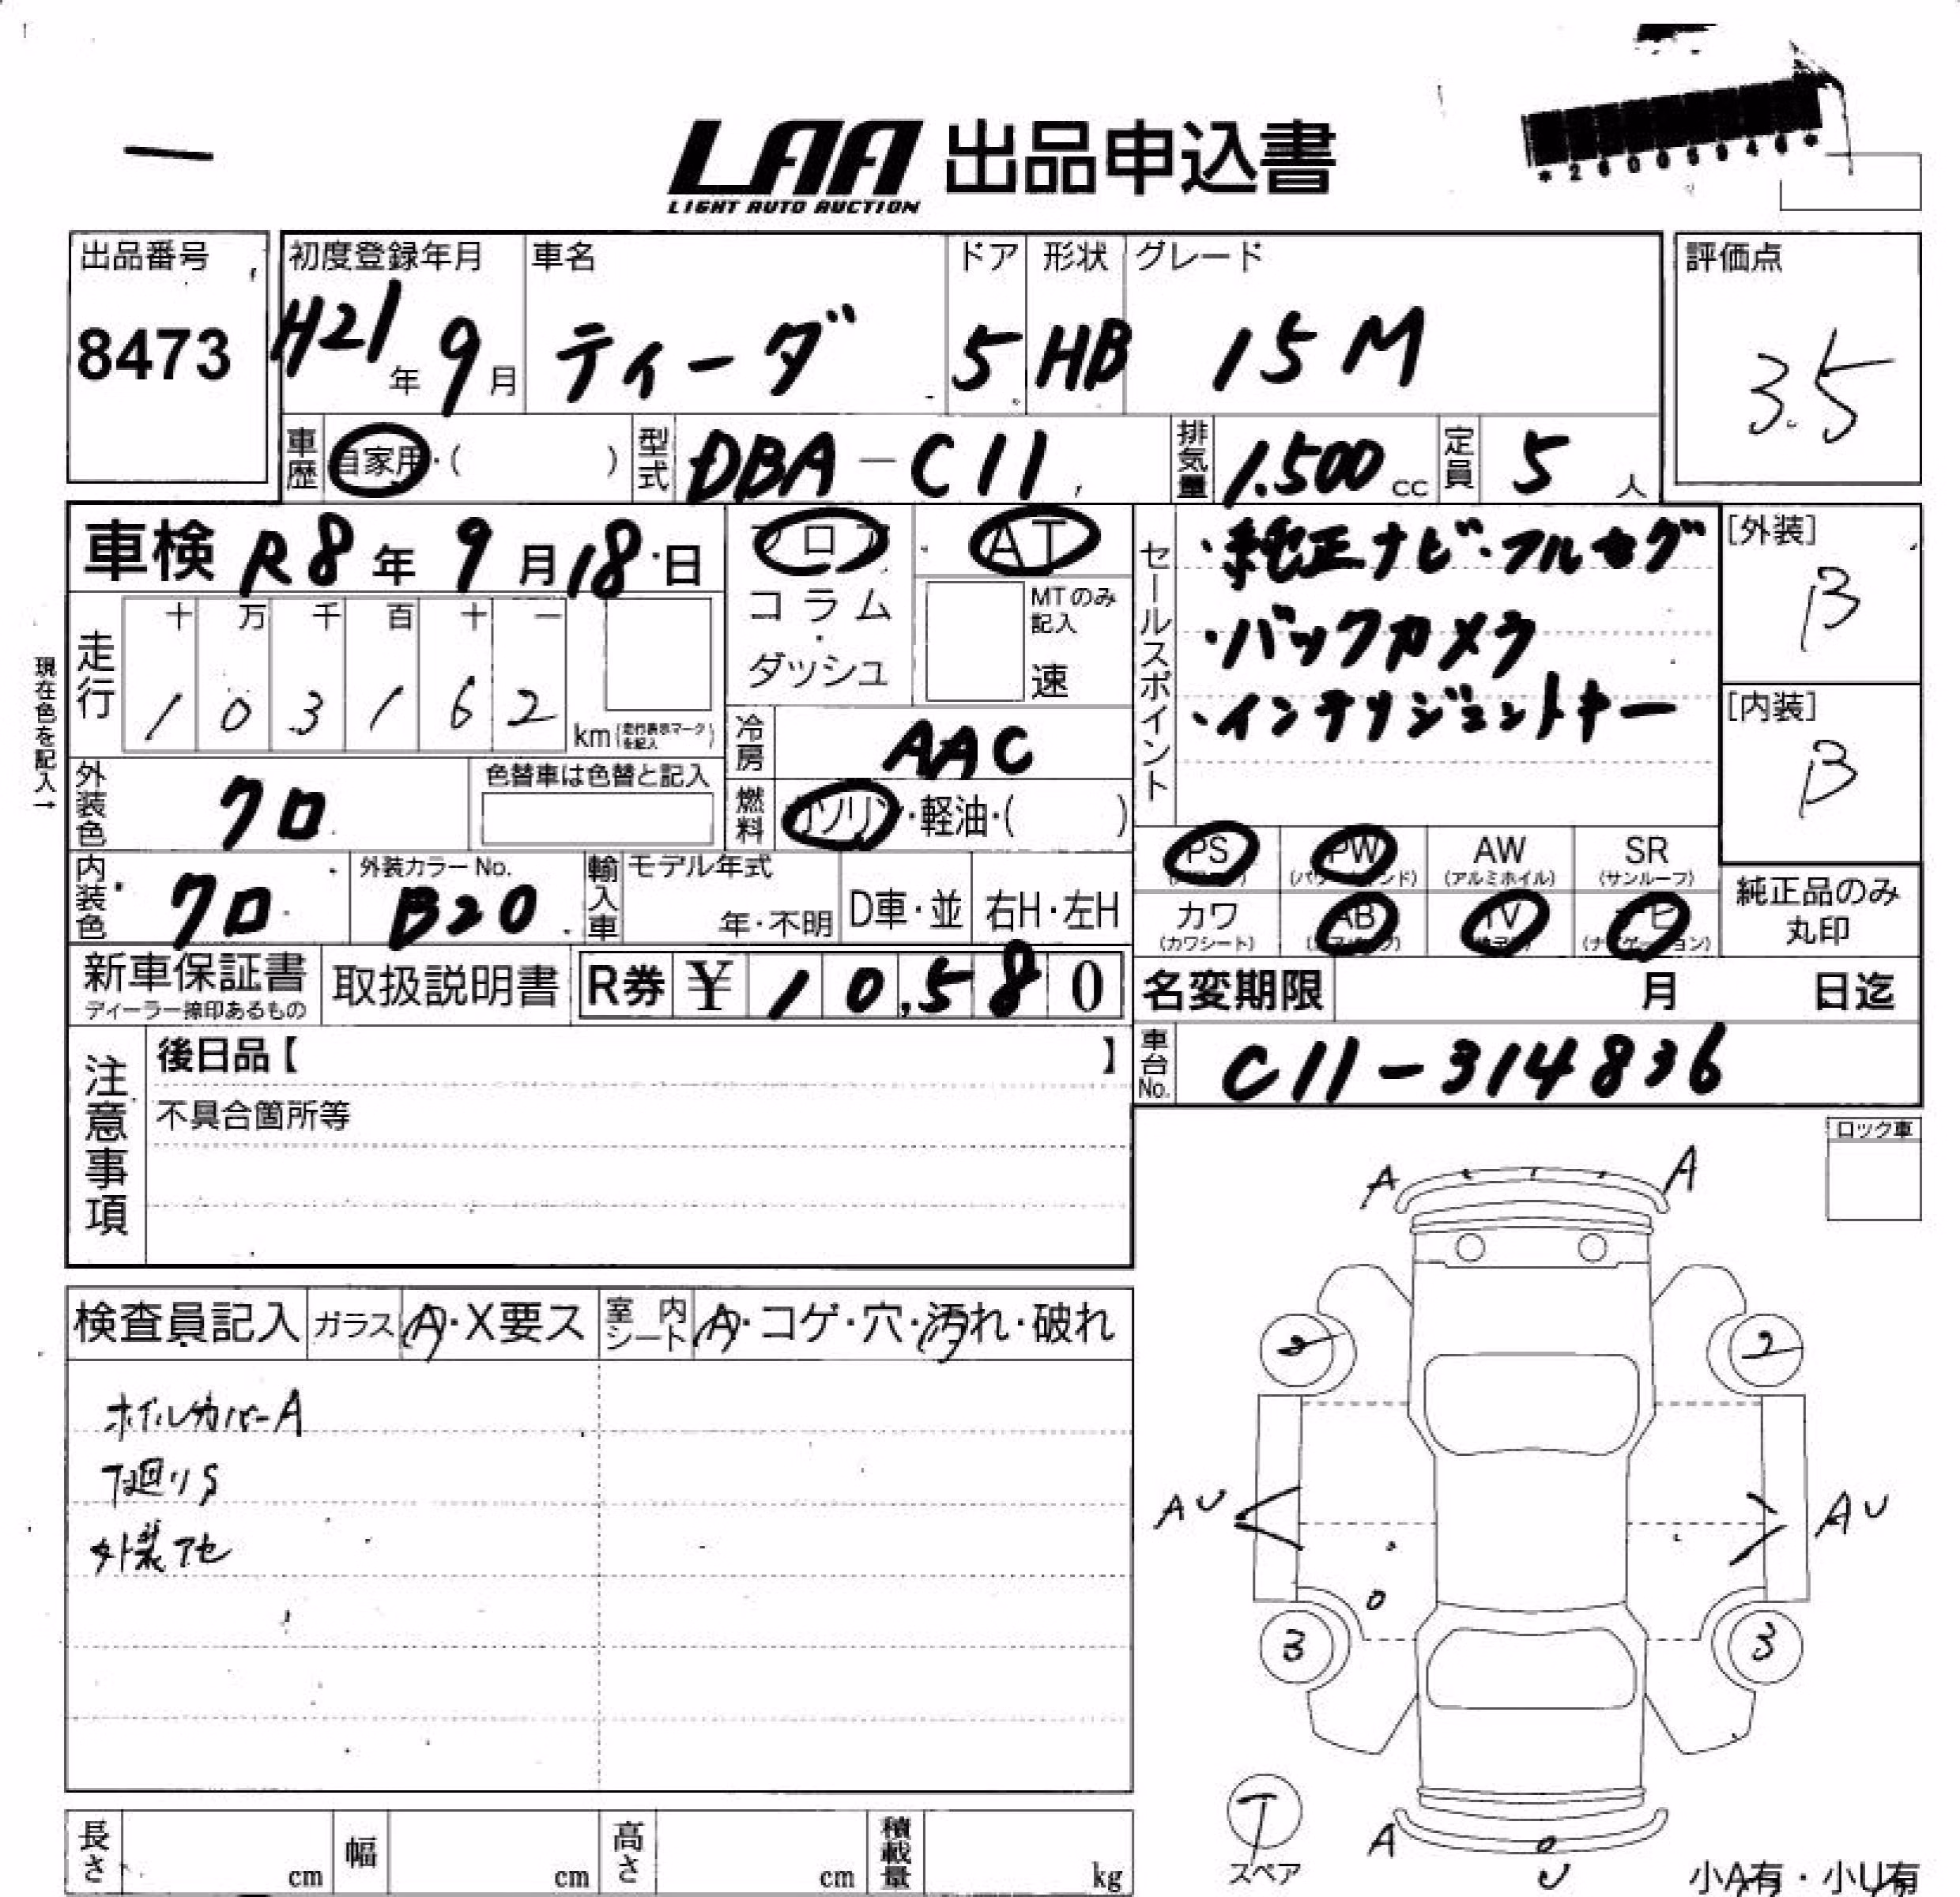 LAA 出品申込書
LIGHT AUTO AUCTION
*26005946*
出品番号
8473
初度登録年月
H21年 9月
車名
ティーダ
ドア
5
形状
HB
グレード
15M
評価点
3.5
車歴 自家用・( )
型式 DBA-C11
排気量 1.500 cc
定員 5 人
車検 R8年 9月 18日
フロア
コラム
・
ダッシュ
AT
MTのみ
記入
速
セールスポイント
・純正ナビ・フルセグ
・バックカメラ
・インテリジェントキー
[外装]
B
[内装]
B
現在色を記入→
走行
十 万 千 百 十 一
1 0 3 1 6 2
km(走行表示マークを記入)
冷房 AAC
燃料 ガソリン・軽油・( )
外装色 クロ
色替車は色替と記入
内装色 クロ
外装カラーNo.
B20
輸入車
モデル年式
年・不明
D車・並
右H・左H
PS PW
(パワーウインド)
AW
(アルミホイル)
SR
(サンルーフ)
カワ
(カワシート)
AB
TV
ナビ
(ナビゲーション)
純正品のみ
丸印
新車保証書
ディーラー捺印あるもの
取扱説明書
R券 ¥ 10,580
名変期限 月 日迄
車台No. C11-314836
注意事項
後日品【 】
不具合箇所等
ロック車
検査員記入
ガラス A・X要ス
室内シート A・コゲ・穴・汚れ・破れ
ホイルカバーA
下廻りS
外装アセ
A
A
2
AU
AU
3
3
T
スペア
A
U
小A有・小U有
長さ cm
幅 cm
高さ cm
積載量 kg